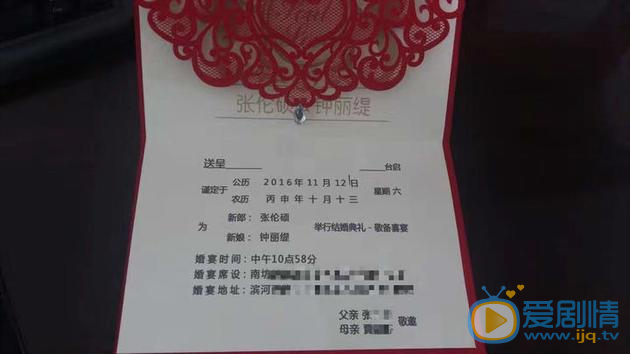 张伦硕 钟丽缇
送呈 台启
谨定于 公历 2016年11月12日 星期六
农历 丙申年十月十三
为 新郎：张伦硕 举行结婚典礼-敬备喜宴
新娘：钟丽缇
婚宴时间：中午10点58分
婚宴席设：南坊
婚宴地址：滨河
父亲 张
母亲 敬邀
爱剧情
www.ijq.tv